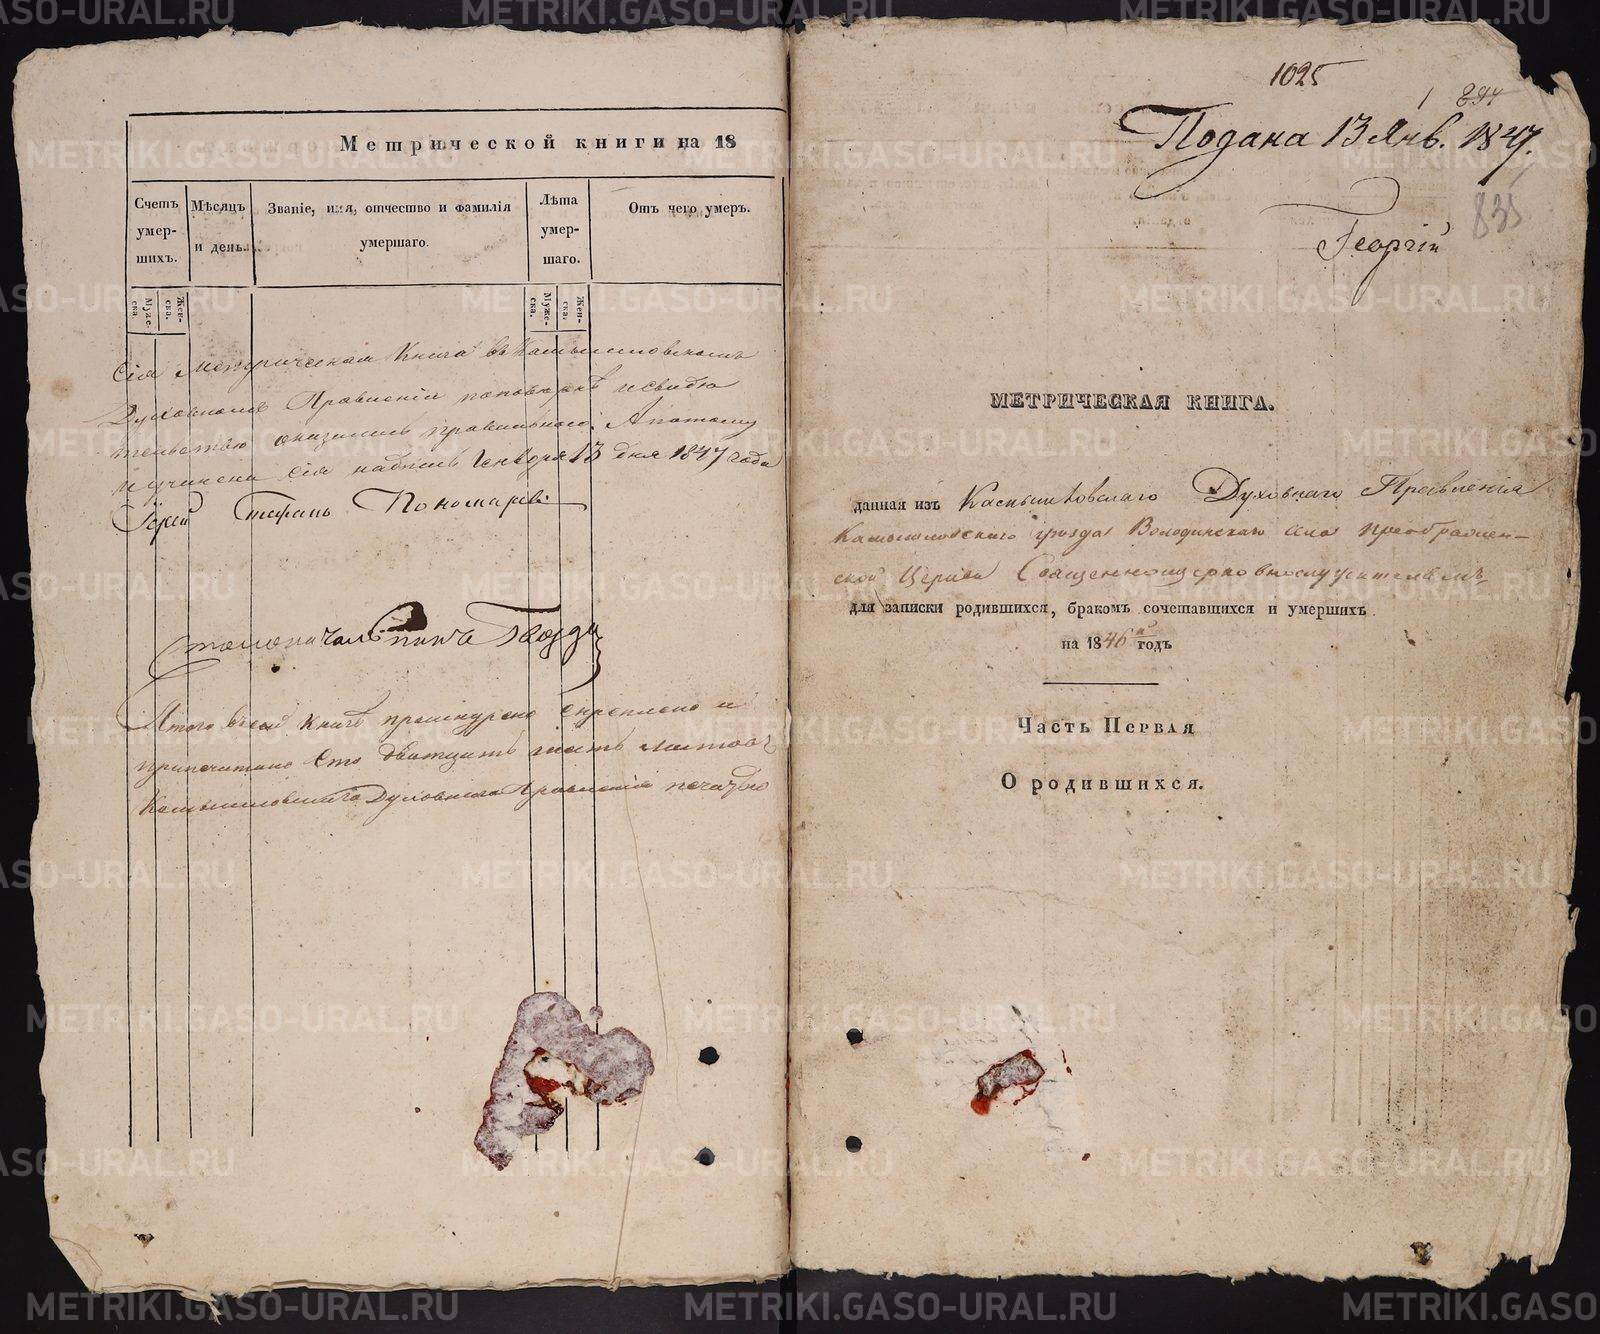 Метрической книги на 18
Счетъ умер-шихъ.
Мѣсяцъ и день.
Званіе, имя, отчество и фамилія умершаго.
Лѣта умер-шаго.
Отъ чего умеръ.
Муже-ска.
Жен-ска.
Муже-ска.
Жен-ска.
Сія Метрическая Книга въ Камышловскомъ
Духовномъ Правленіи по
оказалась правильною. А потому
и учинена сія надпись Генваря 13 дня 1847 года
Іерей Стефанъ Пономаревъ
Столоначальникъ
Итого въ сей Книгѣ прошнурено скреплено и
припечатано Сто дватцать шесть листовъ
Камышловскаго Духовнаго Правленія печатью
1025
1 894
Подана 13 Янв. 1847.
835
Георгій
МЕТРИЧЕСКАЯ КНИГА.
данная изъ Камышловскаго Духовнаго Правленія
Камышловскаго уезда Володинскаго села Преображен-
ской Церкви Священноцерковнослужителямъ,
для записки родившихся, бракомъ сочетавшихся и умершихъ
на 1846й годъ
Часть Первая
О родившихся.
METRIKI.GASO-URAL.RU